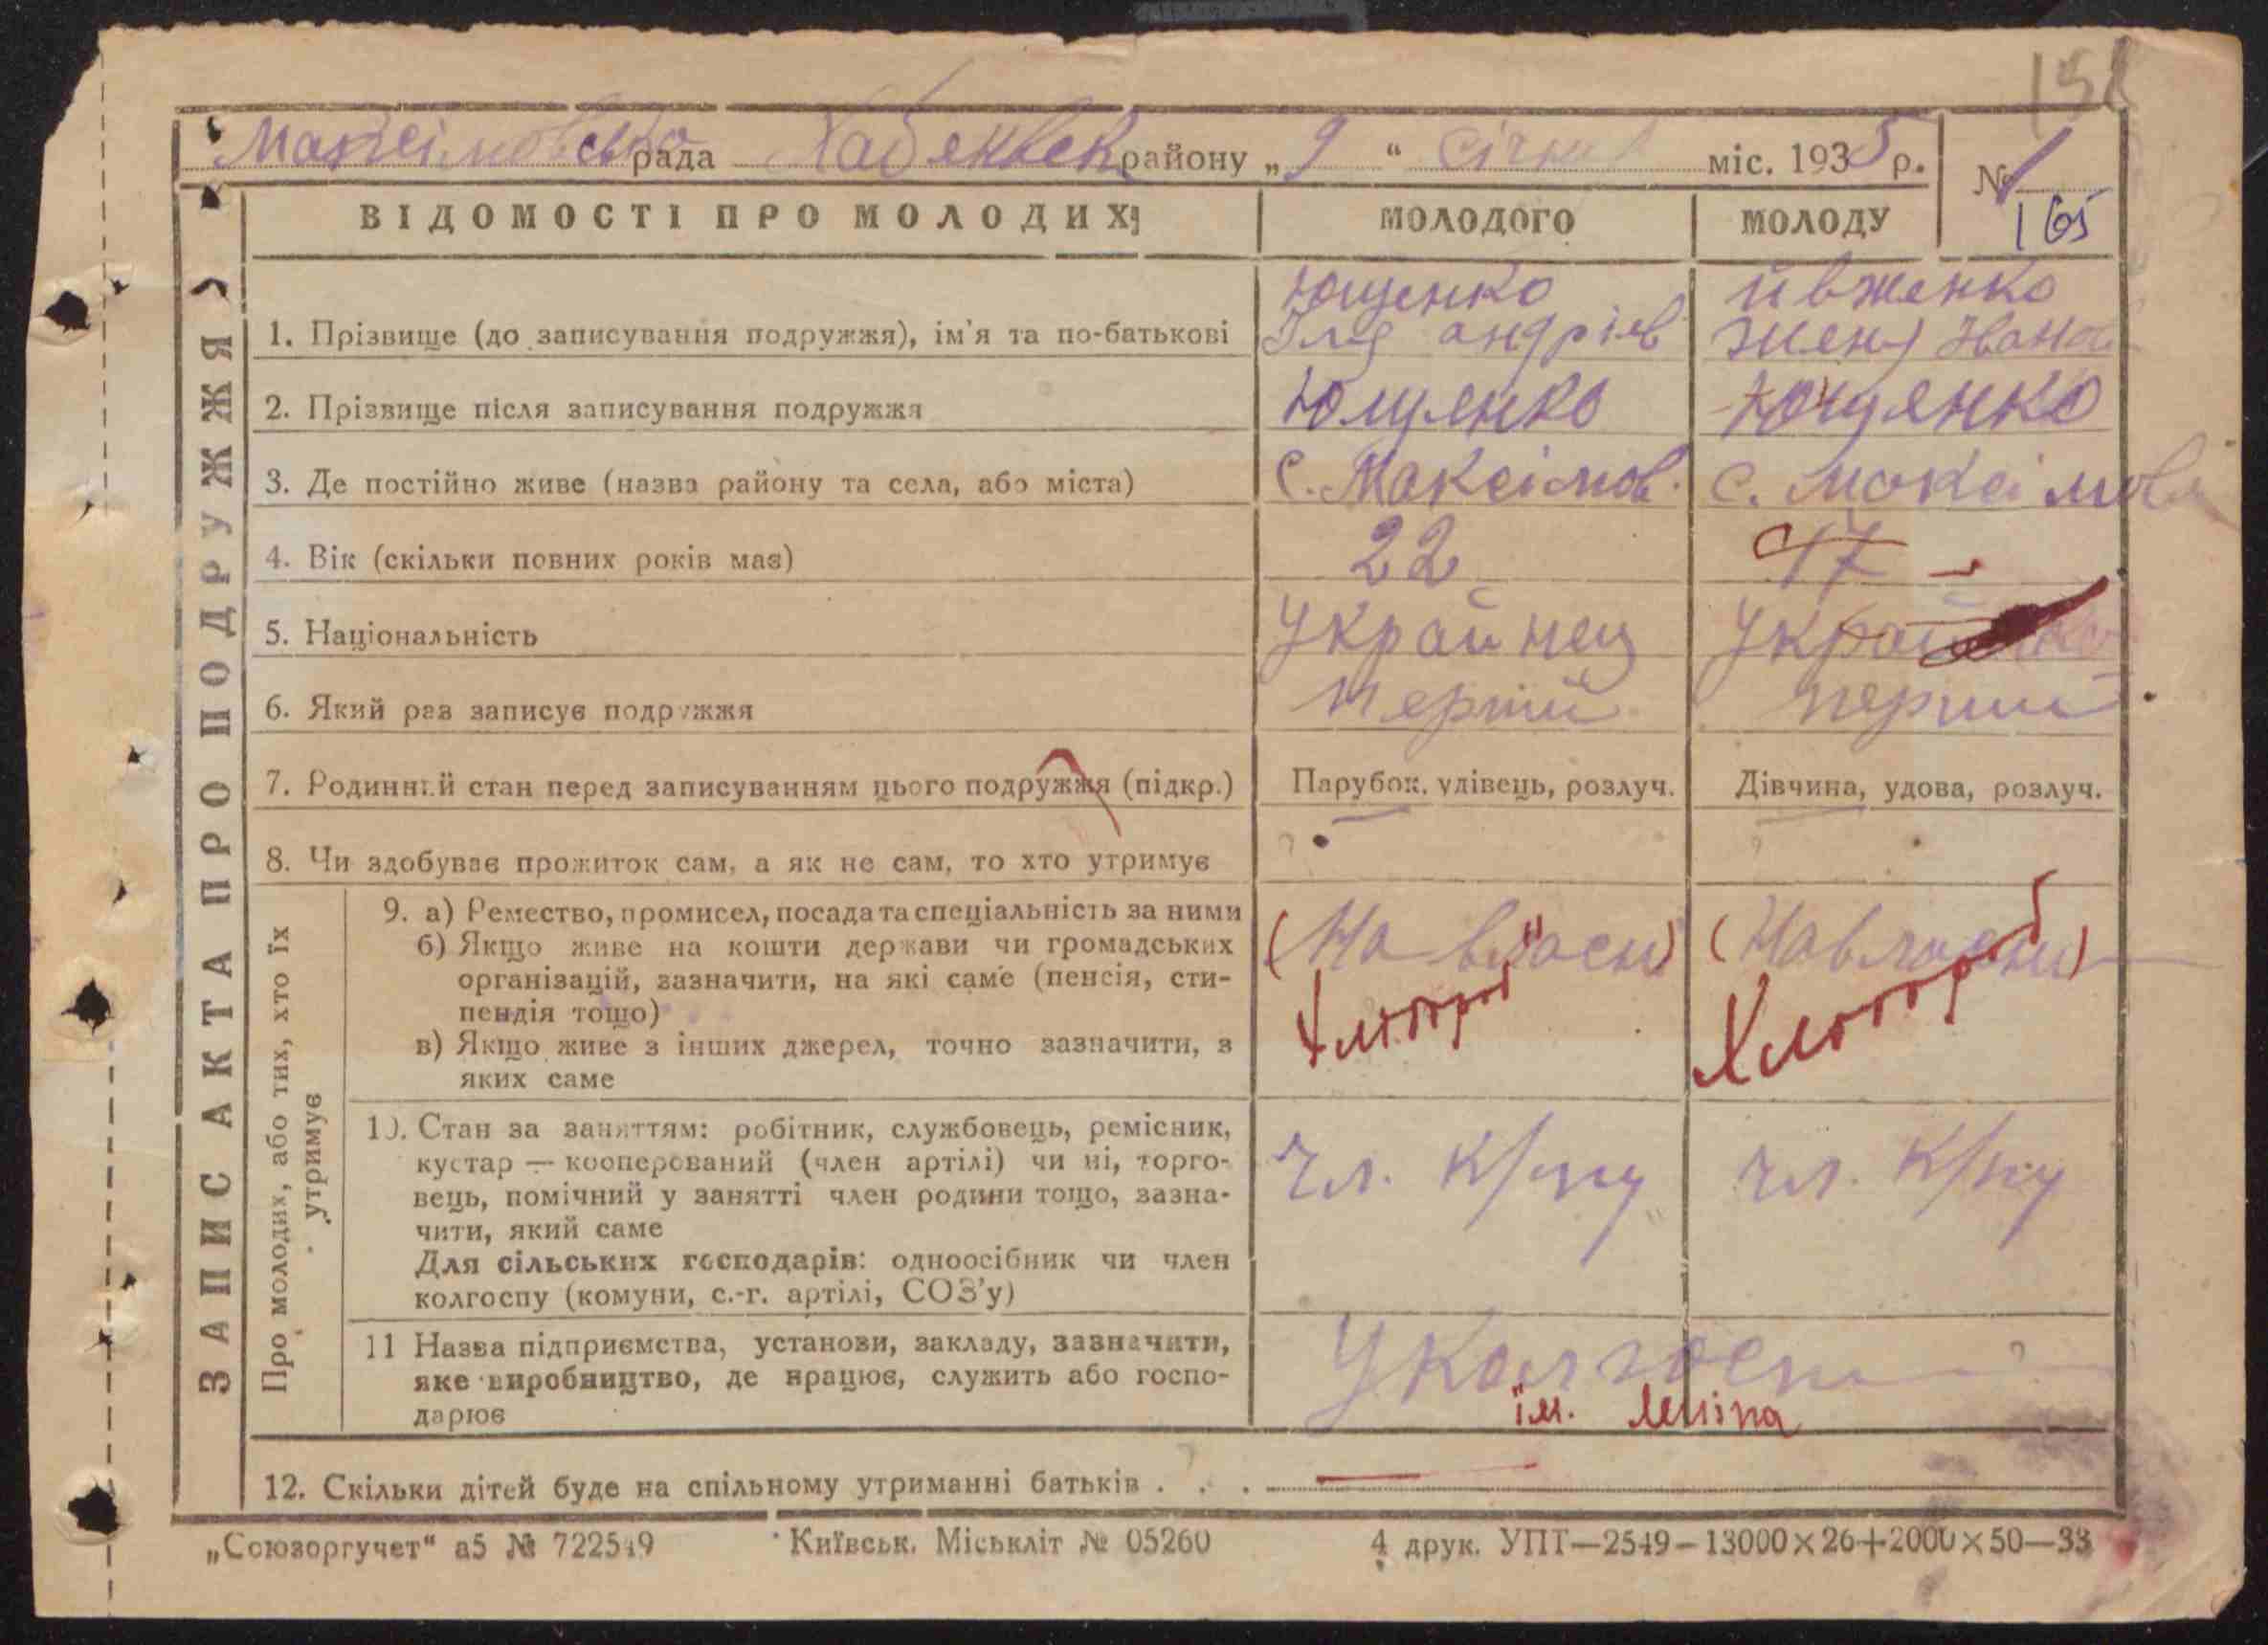 151
Максімовська рада Хабенськ району „9“ січня міс. 1935 р.
№ 1
165
ЗАПИС АКТА ПРО ПОДРУЖЖЯ
ВІДОМОСТІ ПРО МОЛОДИХ МОЛОДОГО МОЛОДУ
Ющенко Ивженко
1. Прізвище (до записування подружжя), ім'я та по-батькові Ілля андріев Іванов
2. Прізвище після записування подружжя Ющенко Ющенко
3. Де постійно живе (назва району та села, або міста) С. Максімов. С. Максімов
4. Вік (скільки повних років має) 22 17
5. Національність Украйнец Украйнка
6. Який раз записує подружжя перший перший
7. Родинний стан перед записуванням цього подружжя (підкр.) Парубок, удівець, розлуч. Дівчина, удова, розлуч.
8. Чи здобуває прожиток сам, а як не сам, то хто утримує
Про молодих, або тих, хто їх
утримує
9. а) Ремество, промисел, посада та спеціальність за ними
б) Якщо живе на кошти держави чи громадських (На власні) (На власні)
організацій, зазначити, на які саме (пенсія, сти-
пендія тощо) Хлібороб Хлібороб
в) Якщо живе з інших джерел, точно зазначити, з
яких саме
10. Стан за заняттям: робітник, службовець, ремісник,
кустар — кооперований (член артілі) чи ні, торго- чл. к/пу чл. к/пу
вець, помічний у занятті член родини тощо, зазна-
чити, який саме
Для сільських господарів: одноосібник чи член
колгоспу (комуни, с.-г. артілі, СОЗ'у)
11 Назва підприємства, установи, закладу, зазначити, У колгоспі
яке виробництво, де працює, служить або госпо- ім. Леніна
дарює
12. Скільки дітей буде на спільному утриманні батьків . . .
„Союзоргучет“ а5 № 722549 Київськ. Міськліт № 05260 4 друк. УПТ—2549—13000×26+2000×50—33